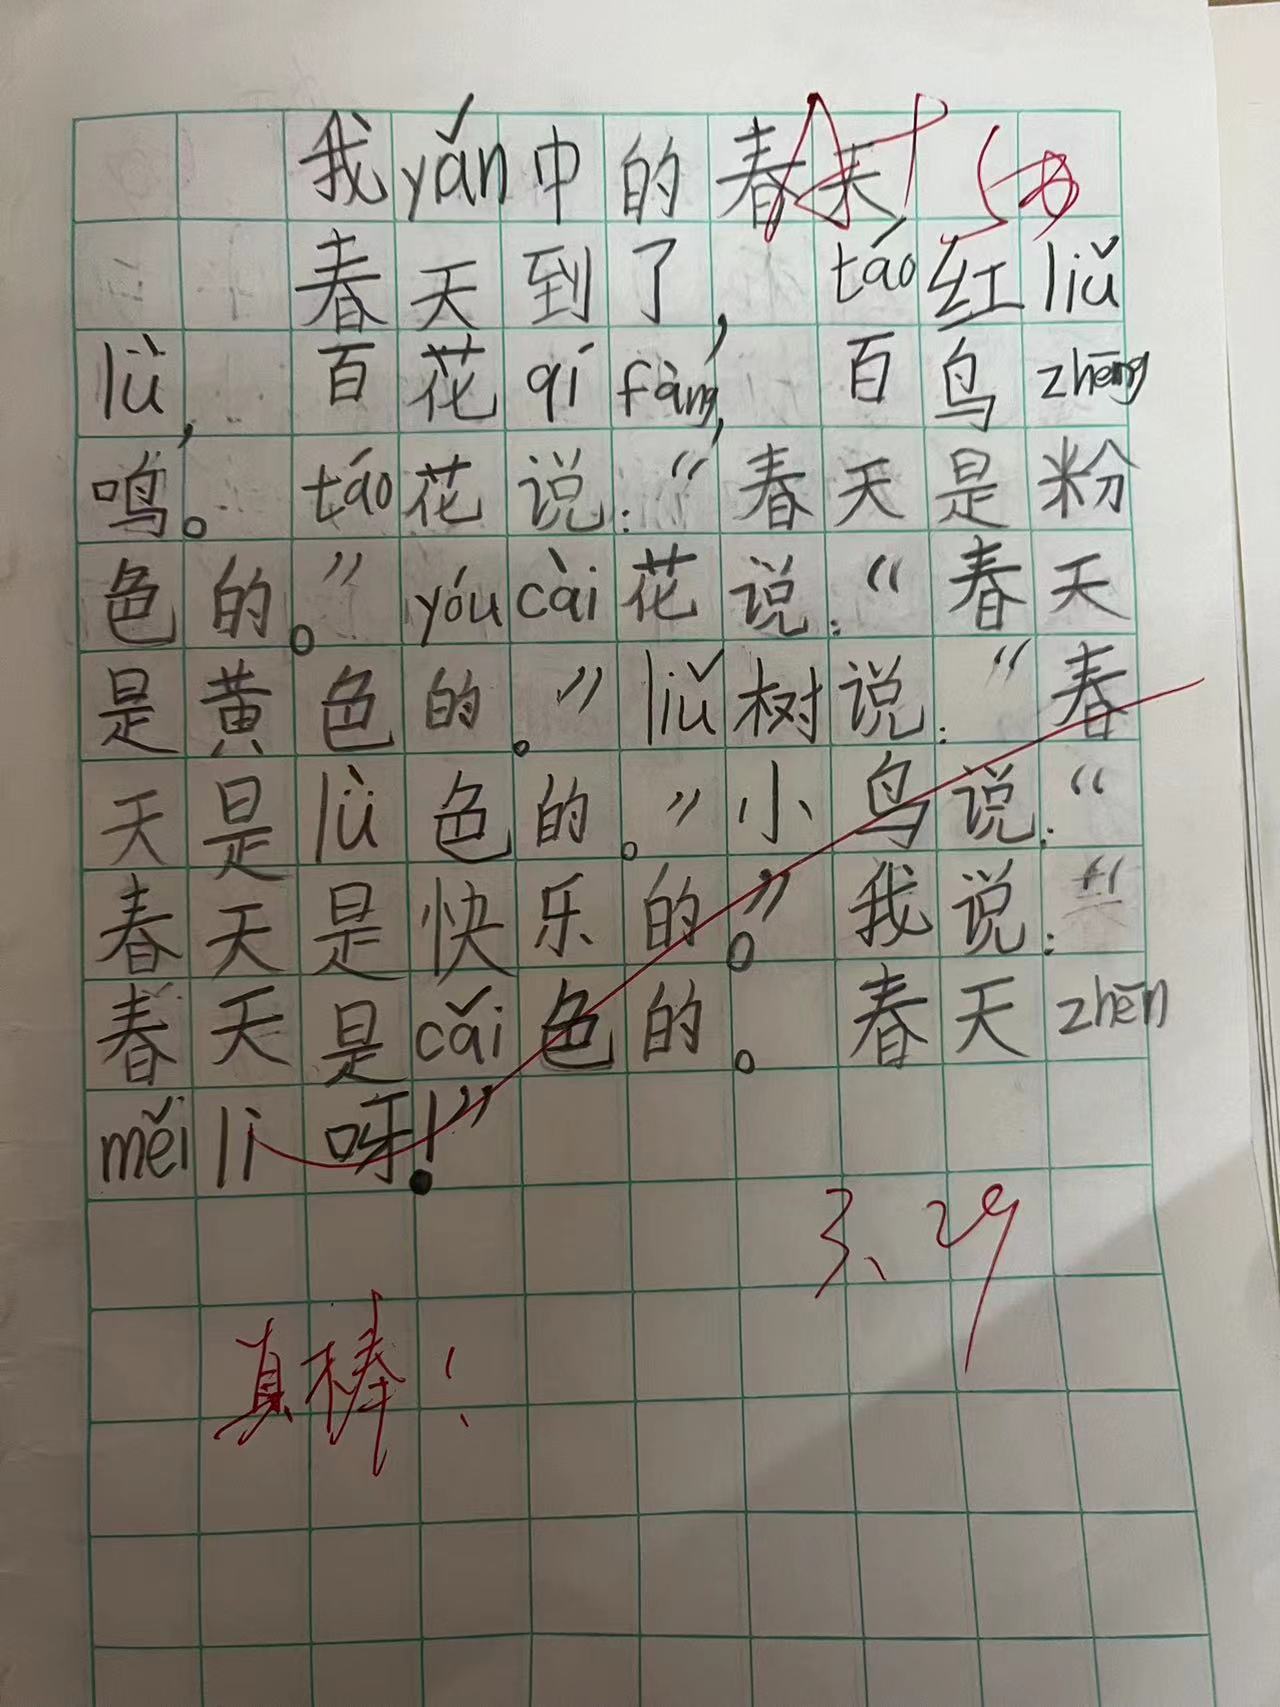 我yǎn中的春天
春天到了，táo红liǔ
lǜ，百花qí fàng，百鸟zhēng
鸣。táo花说：“春天是粉
色的。”yóu cài花说：“春天
是黄色的。”liǔ树说：“春
天是lǜ色的。”小鸟说：“
春天是快乐的。”我说：“
春天是cǎi色的。春天zhēn
měi lì呀！”
3、29
真棒！